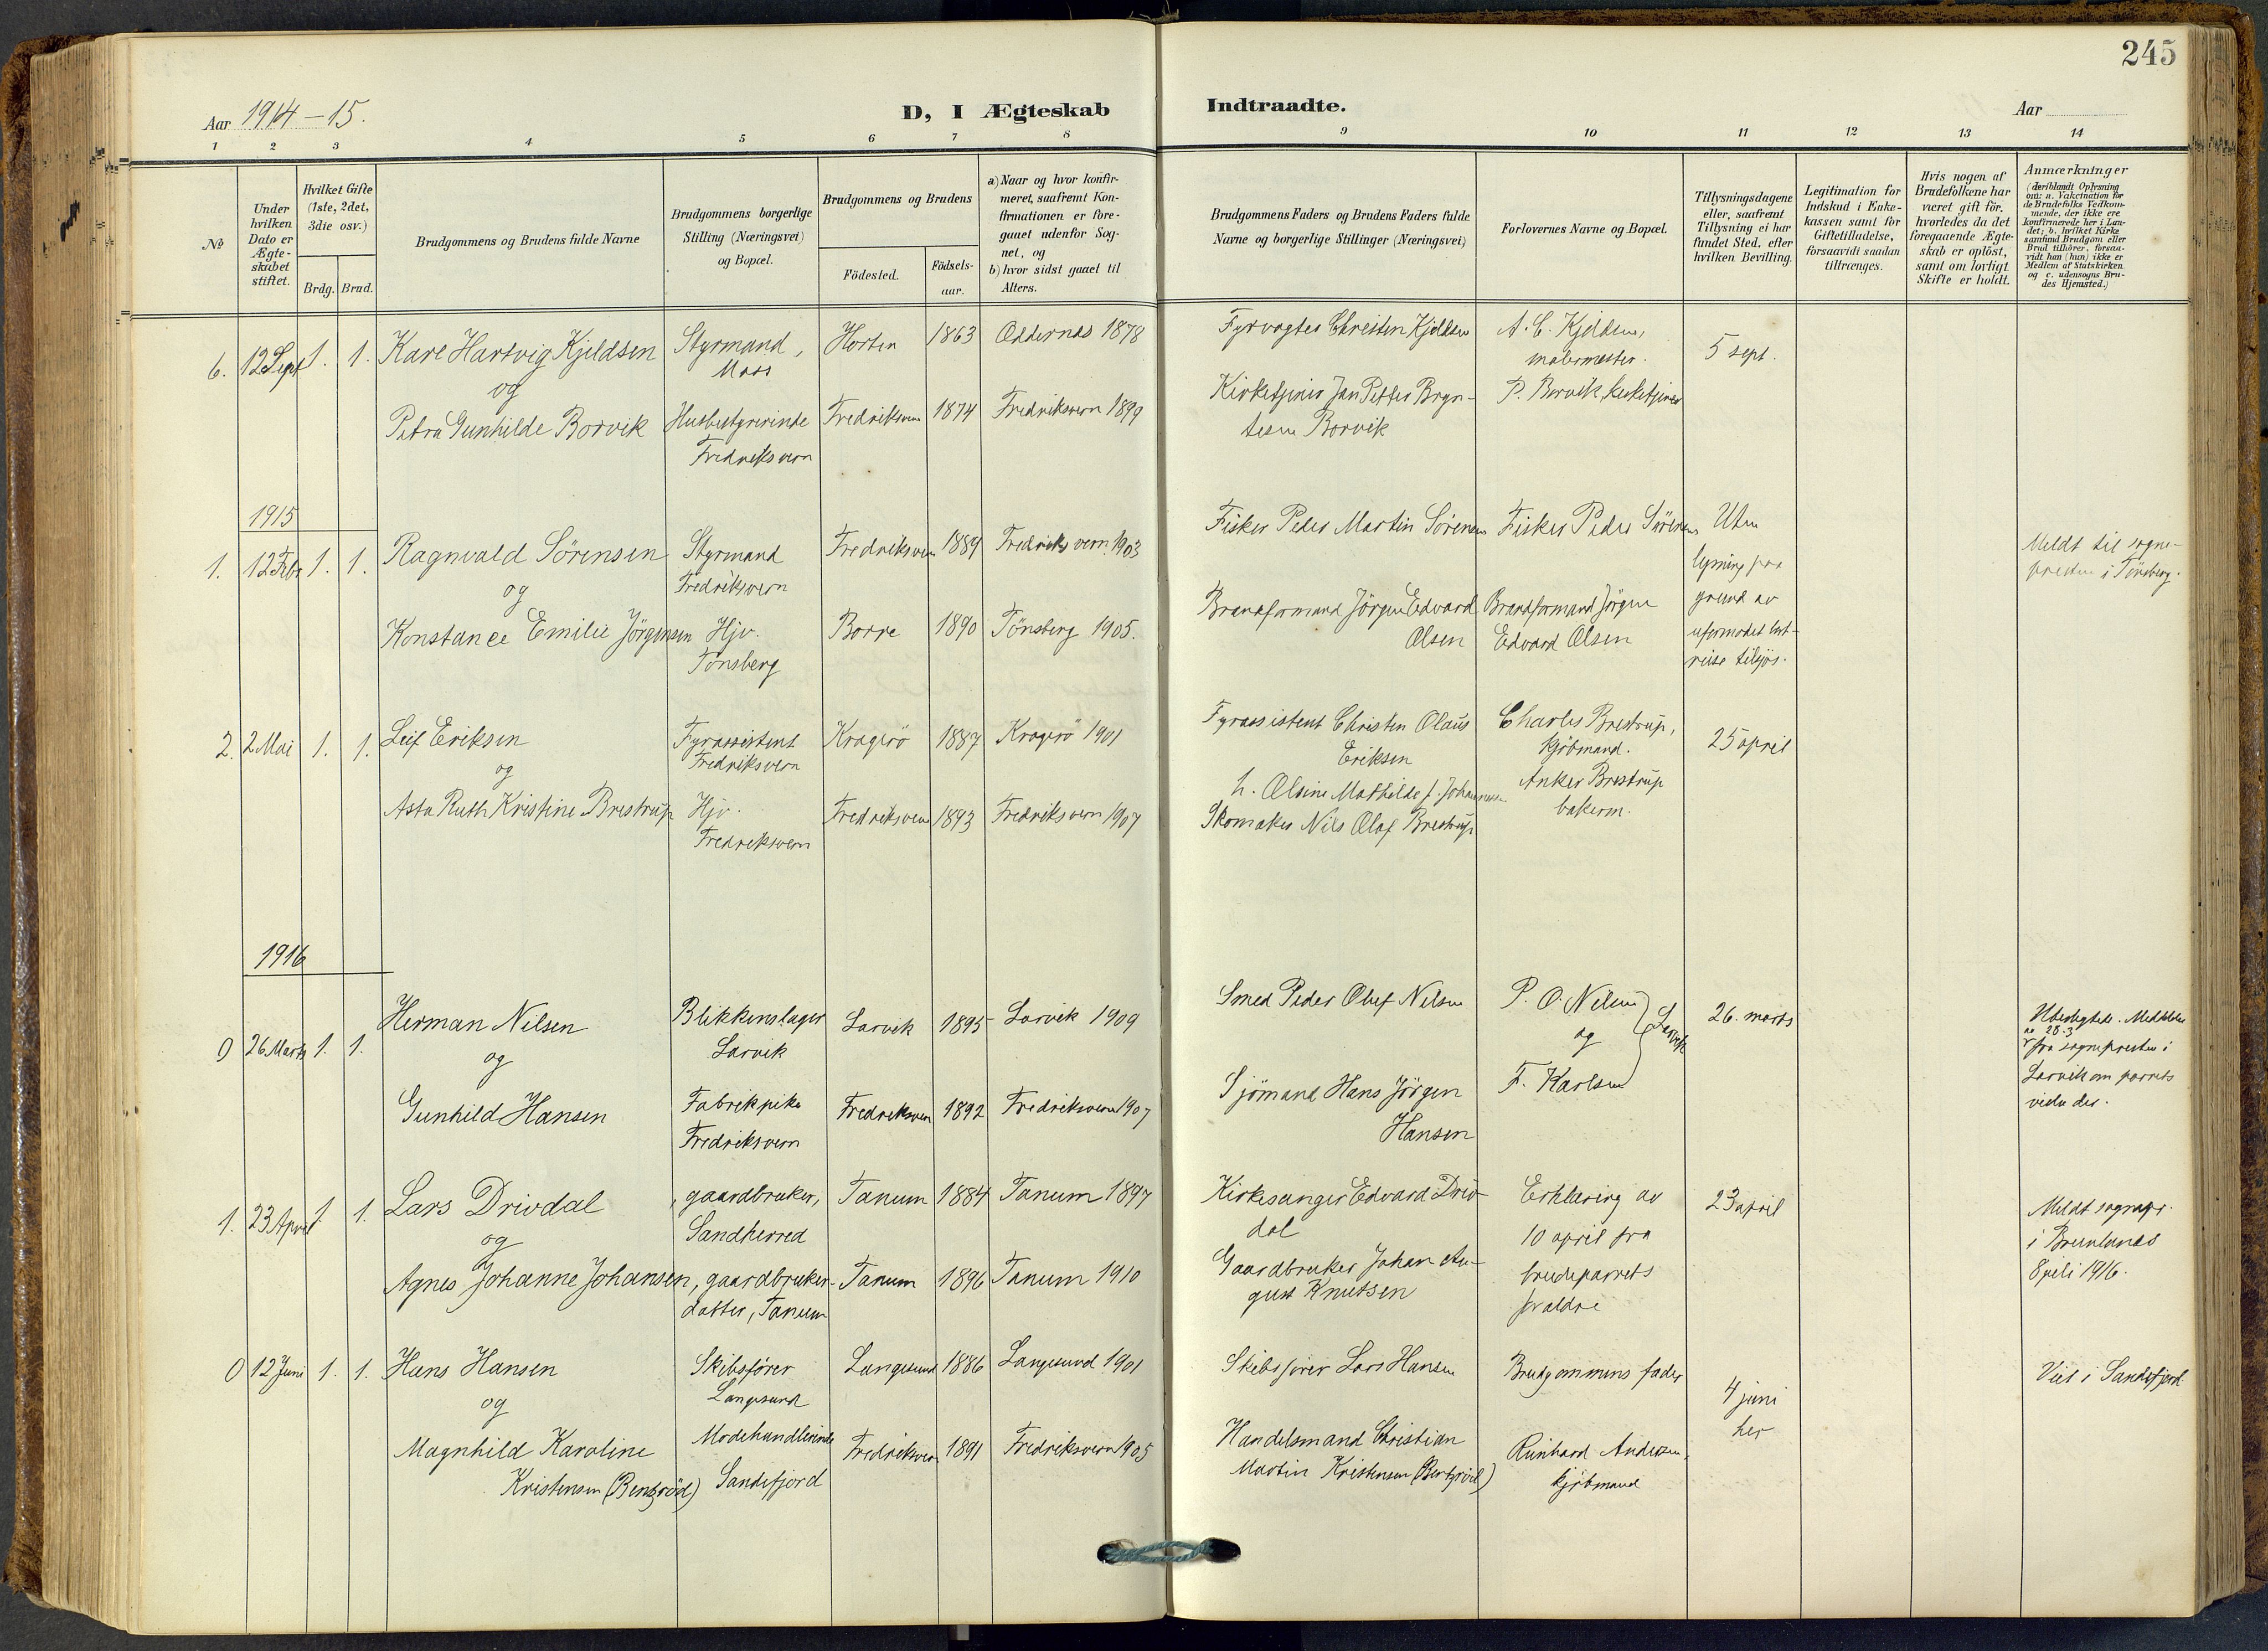 245
Aar 1914-15.
D, I Ægteskab Indtraadte.
Aar
1 2 3 4 5 6 7 8 9 10 11 12 13 14
№
Under hvilken Dato er Ægteskabet stiftet.
Hvilket Gifte (1ste, 2det, 3die osv.)
Brdg. Brud.
Brudgommens og Brudens fulde Navne
Brudgommens borgerlige Stilling (Næringsvei) og Bopæl.
Brudgommens og Brudens
Födested.
Födsels-aar.
a) Naar og hvor konfirmeret, saafremt Konfirmationen er foregaaet udenfor Sognet, og
b) hvor sidst gaaet til Alters.
Brudgommens Faders og Brudens Faders fulde Navne og borgerlige Stillinger (Næringsvei)
Forlovernes Navne og Bopæl.
Tillysningsdagene eller, saafremt Tillysning ei har fundet Sted, efter hvilken Bevilling.
Legitimation for Indskud i Enkekassen samt for Giftetilladelse, forsaavidt saadan tiltrænges.
Hvis nogen af Brudefolkene har været gift för, hvorledes da det foregaaende Ægteskab er oplöst, samt om lovligt Skifte er holdt.
Anmærkninger
(deriblandt Oplysning om: a. Vakcination for de Brudefolks Vedkommende, der ikke ere konfirmerede her i Landet; b. hvilket Kirkesamfund Brudgom eller Brud tilhörer, forsaavidt han (hun) ikke er Medlem af Statskirken og c. udensogns Brudes Hjemsted.)
6. 12 Sept 1. 1. Kare Hartvig Kjeldsen Styrmand, Horten 1863 Oddernes 1878 Fyrvogter Christen Kjeldsen A. C. Kjeldsen, 5 sept.
og Moss malermester.
Petra Gunhilde Borvik Husbestyrerinde Fredriksvern 1874 Fredriksvern 1899 Kirketjener Jan Petter Bryn- P. Borvik, kirketjener
Fredriksvern tesen Borvik
1915
1. 12 Febr 1. 1. Ragnvald Sörensen Styrmand Fredriksvern 1889 Fredriksvern 1903 Fisker Peder Martin Sörensen Fisker Peder Sörensen Uten Meldt til sogne-
og Fredriksvern lysning paa presten i Tönsberg.
Konstance Emilie Jörgensen Hjv. Borre 1890 Tönsberg 1905. Brandformand Jörgen Edvard Brandformand Jörgen grund av
Tönsberg Olsen Edvard Olsen uformodet bort-
reise tilsjös.
2. 2 Mai 1. 1. Leif Eriksen Fyrassistent Kragerö 1887 Kragerö 1901 Fyrassistent Christen Olaus Charles Brestrup, 25 april
og Fredriksvern Eriksen kjöbmand.
h. Olsine Mathilde f. Johannesen Anker Brestrup
Asta Ruth Kristine Brestrup Hjv. Fredriksvern 1893 Fredriksvern 1907 Skomaker Nils Olaf Brestrup bakerm.
Fredriksvern
1916
0 26 Marts 1. 1. Herman Nilsen Blikkenslager Larvik 1895 Larvik 1909 Smed Peder Oluf Nilsen P. O. Nilsen 26. marts
og Larvik og Larvik
Gunhild Hansen Fabrikpike Fredriksvern 1892 Fredriksvern 1907 Sjömand Hans Jörgen F. Karlsen
Fredriksvern Hansen
av 28.3
fra sognepresten i
Larvik om parrets
vielse der.
1. 23 April 1. 1. Lars Drivdal gaardbruker, Tanum 1884 Tanum 1897 Kirkesanger Edvard Driv- Erklæring av 23 april Meldt sognepr.
og Sandherred dal 10 april fra i Brunlanes
Agnes Johanne Johansen, gaardbruker- Tanum 1896 Tanum 1910 Gaardbruker Johan Au- brudeparrets 1916.
datter, Tanum gust Knutsen foraldre
0 12 Juni 1. 1. Hans Hansen Skibsförer Langesund 1886 Langesund 1901 Skibsförer Lars Hansen Brudgommens fader 4 juni Viet i Sandefjord
og Langesund her
Magnhild Karoline Modehandlerinde Fredriksvern 1891 Fredriksvern 1905 Handelsmand Christian Reinhard Andersen,
Kristensen (Bentzröd) Sandefjord Martin Kristensen (Bentzröd) kjöbmand